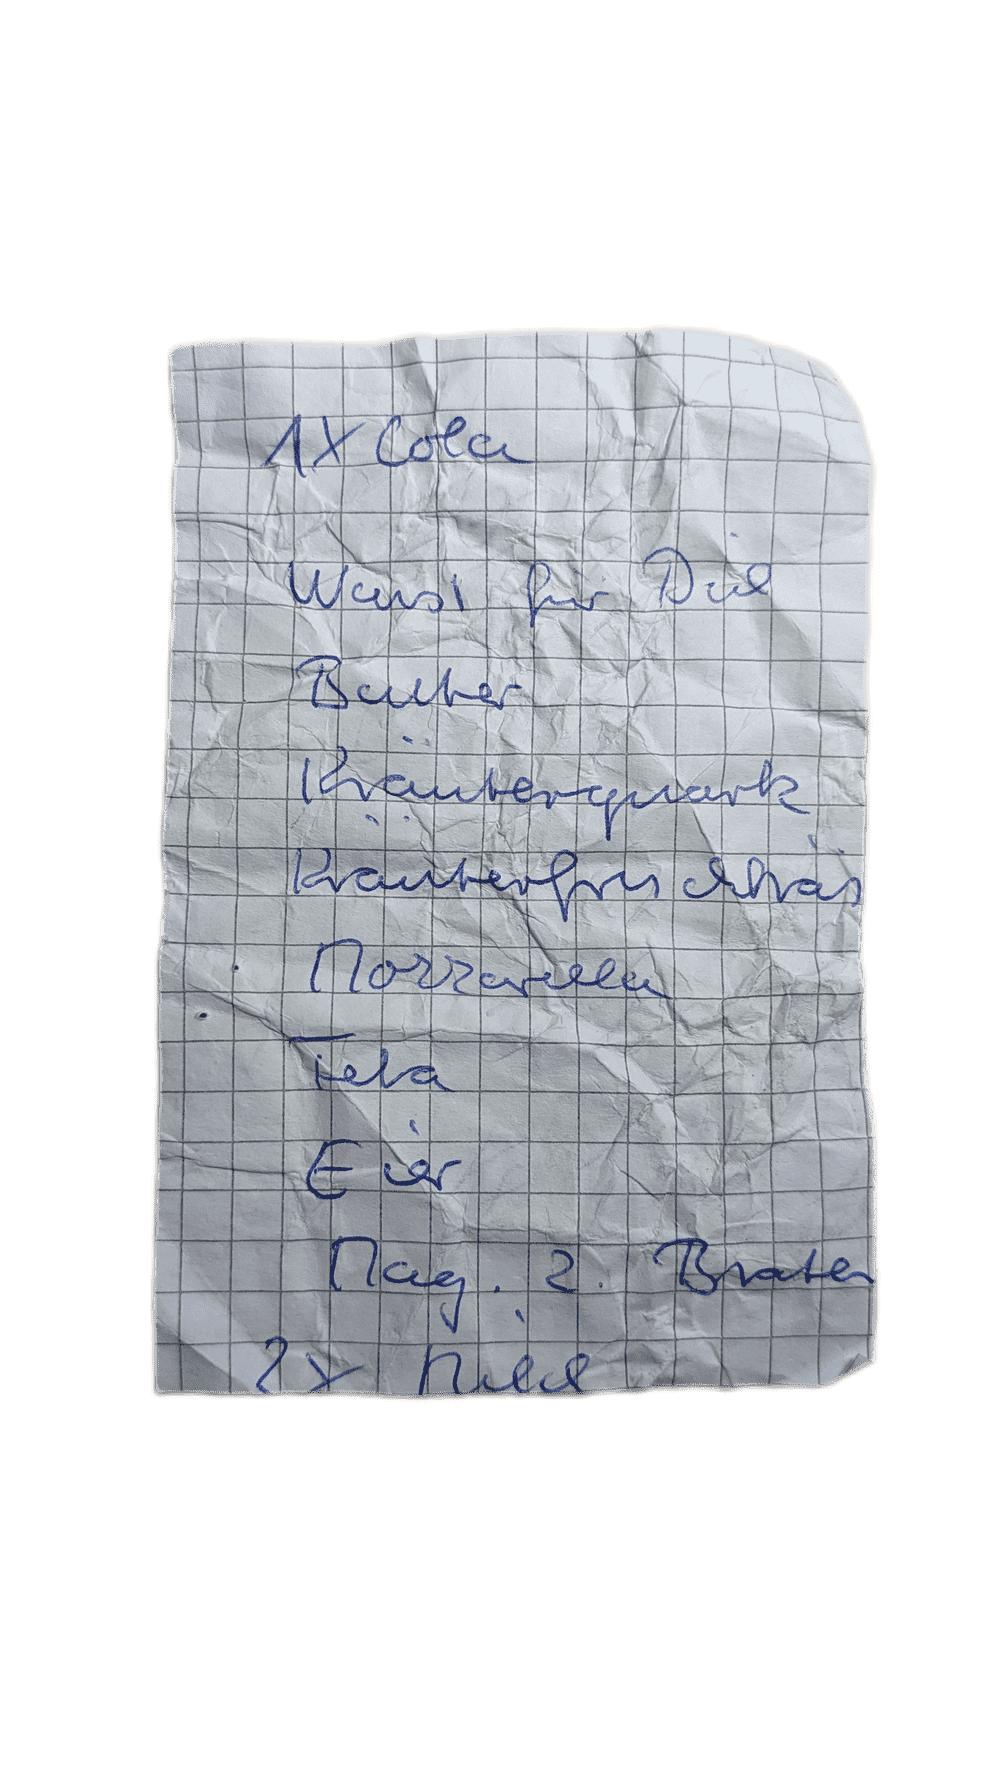 1X Cola
Wurst für Dich
Butter
Kräuterquark
Kräuterfrischkäs
Mozzarella
Feta
Eier
Mag. 2. Braten
2X Milch